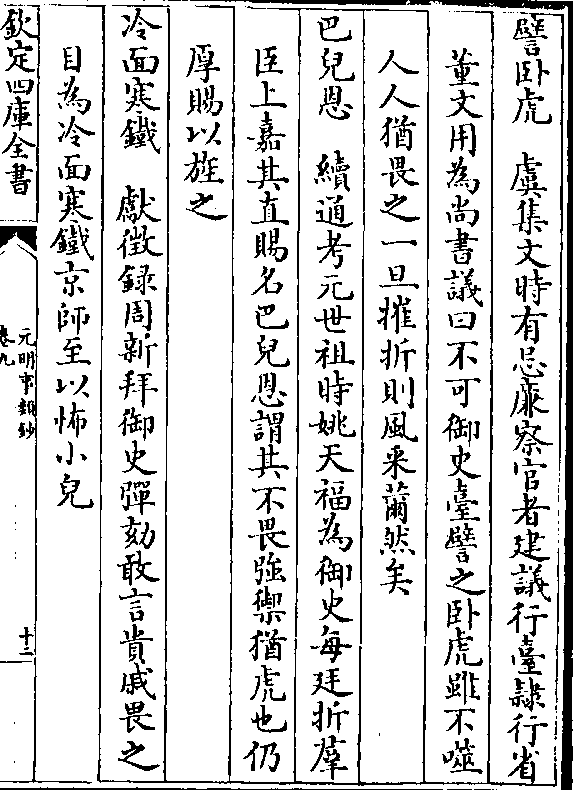 譬卧虎　虞集文時有忌廉察官者建議行臺隷行省
董文用為尚書議曰不可御史臺譬之卧虎雖不噬
人人猶畏之一旦摧折則風采薾然矣
巴兒恩　續通考元世祖時姚天福為御史每廷折羣
臣上嘉其直賜名巴兒恩謂其不畏強禦猶虎也仍
厚賜以旌之
冷面寒鐵　獻徴録周新拜御史彈劾敢言貴戚畏之
目為冷面寒鐵京師至以怖小兒
欽定四庫全書
元明事類鈔
卷九
十二